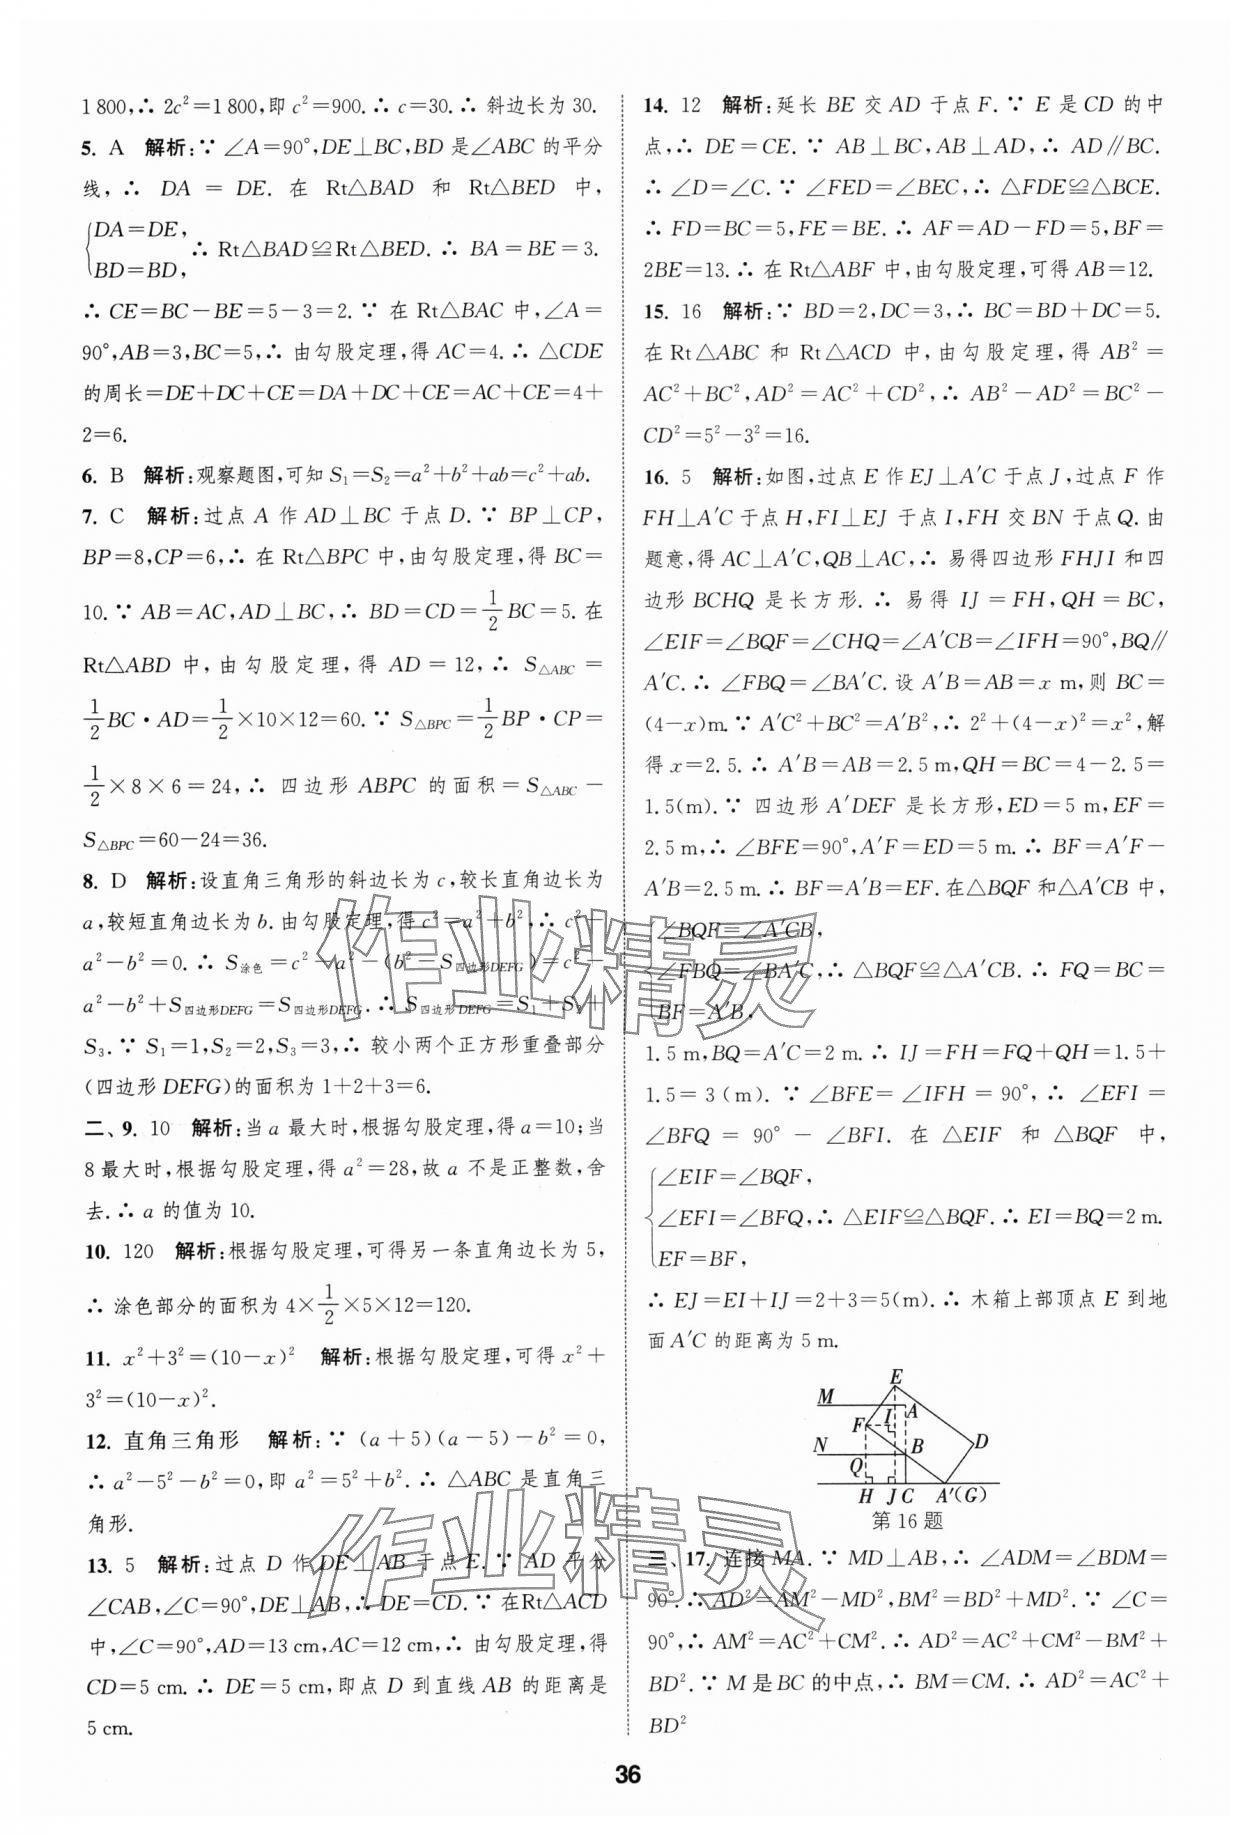 1 800,∴ 2c²=1 800,即 c²=900.∴ c=30.∴ 斜边长为 30.
5. A 解析:∵ ∠A=90°,DE⊥BC,BD 是∠ABC 的平分
线,∴ DA = DE. 在 Rt△BAD 和 Rt△BED 中,
{DA=DE,
BD=BD, ∴ Rt△BAD≌Rt△BED.∴ BA=BE=3.
∴ CE=BC-BE=5-3=2.∵ 在 Rt△BAC 中,∠A=
90°,AB=3,BC=5,∴ 由勾股定理,得 AC=4.∴ △CDE
的周长=DE+DC+CE=DA+DC+CE=AC+CE=4+
2=6.
6. B 解析:观察题图,可知 S₁=S₂=a²+b²+ab=c²+ab.
7. C 解析:过点 A 作 AD⊥BC 于点 D.∵ BP⊥CP,
BP=8,CP=6,∴ 在 Rt△BPC 中,由勾股定理,得 BC=
10.∵ AB=AC,AD⊥BC,∴ BD=CD=1/2BC=5.在
Rt△ABD 中,由勾股定理,得 AD=12,∴ S△ABC=
1/2BC·AD=1/2×10×12=60.∵ S△BPC=1/2BP·CP=
1/2×8×6=24,∴ 四边形 ABPC 的面积=S△ABC-
S△BPC=60-24=36.
8. D 解析:设直角三角形的斜边长为 c,较长直角边长为
a,较短直角边长为 b.由勾股定理,得 c²=a²+b²,∴ c²-
a²-b²=0.∴ S涂色=c²-a²-(b²-S四边形DEFG)=c²-
a²-b²+S四边形DEFG=S四边形DEFG.∴ S四边形DEFG=S₁+S₂+
S₃.∵ S₁=1,S₂=2,S₃=3,∴ 较小两个正方形重叠部分
(四边形 DEFG)的面积为 1+2+3=6.
二、9. 10 解析:当 a 最大时,根据勾股定理,得 a=10;当
8 最大时,根据勾股定理,得 a²=28,故 a 不是正整数,舍
去.∴ a 的值为 10.
10. 120 解析:根据勾股定理,可得另一条直角边长为 5,
∴ 涂色部分的面积为 4×1/2×5×12=120.
11. x²+3²=(10-x)² 解析:根据勾股定理,可得 x²+
3²=(10-x)².
12. 直角三角形 解析:∵ (a+5)(a-5)-b²=0,
∴ a²-5²-b²=0,即 a²=5²+b².∴ △ABC 是直角三
角形.
13. 5 解析:过点 D 作 DE⊥AB 于点 E.∵ AD 平分
∠CAB,∠C=90°,DE⊥AB,∴ DE=CD.∵ 在Rt△ACD
中,∠C=90°,AD=13 cm,AC=12 cm,∴ 由勾股定理,得
CD=5 cm.∴ DE=5 cm,即点 D 到直线 AB 的距离是
5 cm.
14. 12 解析:延长 BE 交 AD 于点 F.∵ E 是 CD 的中
点,∴ DE=CE.∵ AB⊥BC,AB⊥AD,∴ AD∥BC.
∴ ∠D=∠C.∵ ∠FED=∠BEC,∴ △FDE≌△BCE.
∴ FD=BC=5,FE=BE.∴ AF=AD-FD=5,BF=
2BE=13.∴ 在 Rt△ABF 中,由勾股定理,可得 AB=12.
15. 16 解析:∵ BD=2,DC=3,∴ BC=BD+DC=5.
在 Rt△ABC 和 Rt△ACD 中,由勾股定理,得 AB²=
AC²+BC²,AD²=AC²+CD²,∴ AB²-AD²=BC²-
CD²=5²-3²=16.
16. 5 解析:如图,过点 E 作 EJ⊥A′C 于点 J,过点 F 作
FH⊥A′C 于点 H,FI⊥EJ 于点 I,FH 交 BN 于点 Q.由
题意,得 AC⊥A′C,QB⊥AC,∴ 易得四边形 FHJI 和四
边形 BCHQ 是长方形.∴ 易得 IJ=FH,QH=BC,
∠EIF=∠BQF=∠CHQ=∠A′CB=∠IFH=90°,BQ∥
A′C.∴ ∠FBQ=∠BA′C.设 A′B=AB=x m,则 BC=
(4-x)m.∵ A′C²+BC²=A′B²,∴ 2²+(4-x)²=x²,解
得 x=2.5.∴ A′B=AB=2.5 m,QH=BC=4-2.5=
1.5(m).∵ 四边形 A′DEF 是长方形,ED=5 m,EF=
2.5 m,∴ ∠BFE=90°,A′F=ED=5 m.∴ BF=A′F-
A′B=2.5 m.∴ BF=A′B=EF.在△BQF 和△A′CB 中,
{∠BQF=∠A′CB,
∠FBQ=∠BA′C,∴ △BQF≌△A′CB.∴ FQ=BC=
BF=A′B,
1.5 m,BQ=A′C=2 m.∴ IJ=FH=FQ+QH=1.5+
1.5=3(m).∵ ∠BFE=∠IFH=90°,∴ ∠EFI=
∠BFQ=90°-∠BFI.在 △EIF 和 △BQF 中,
{∠EIF=∠BQF,
∠EFI=∠BFQ,∴ △EIF≌△BQF.∴ EI=BQ=2 m.
EF=BF,
∴ EJ=EI+IJ=2+3=5(m).∴ 木箱上部顶点 E 到地
面 A′C 的距离为 5 m.
E
M
A
F
I
N
B
D
Q
H J C A′(G)
第16题
三、17. 连接 MA.∵ MD⊥AB,∴ ∠ADM=∠BDM=
90°.∴ AD²=AM²-MD²,BM²=BD²+MD².∵ ∠C=
90°,∴ AM²=AC²+CM².∴ AD²=AC²+CM²-BM²+
BD².∵ M 是 BC 的中点,∴ BM=CM.∴ AD²=AC²+
BD²
36
作业精灵
作业精灵